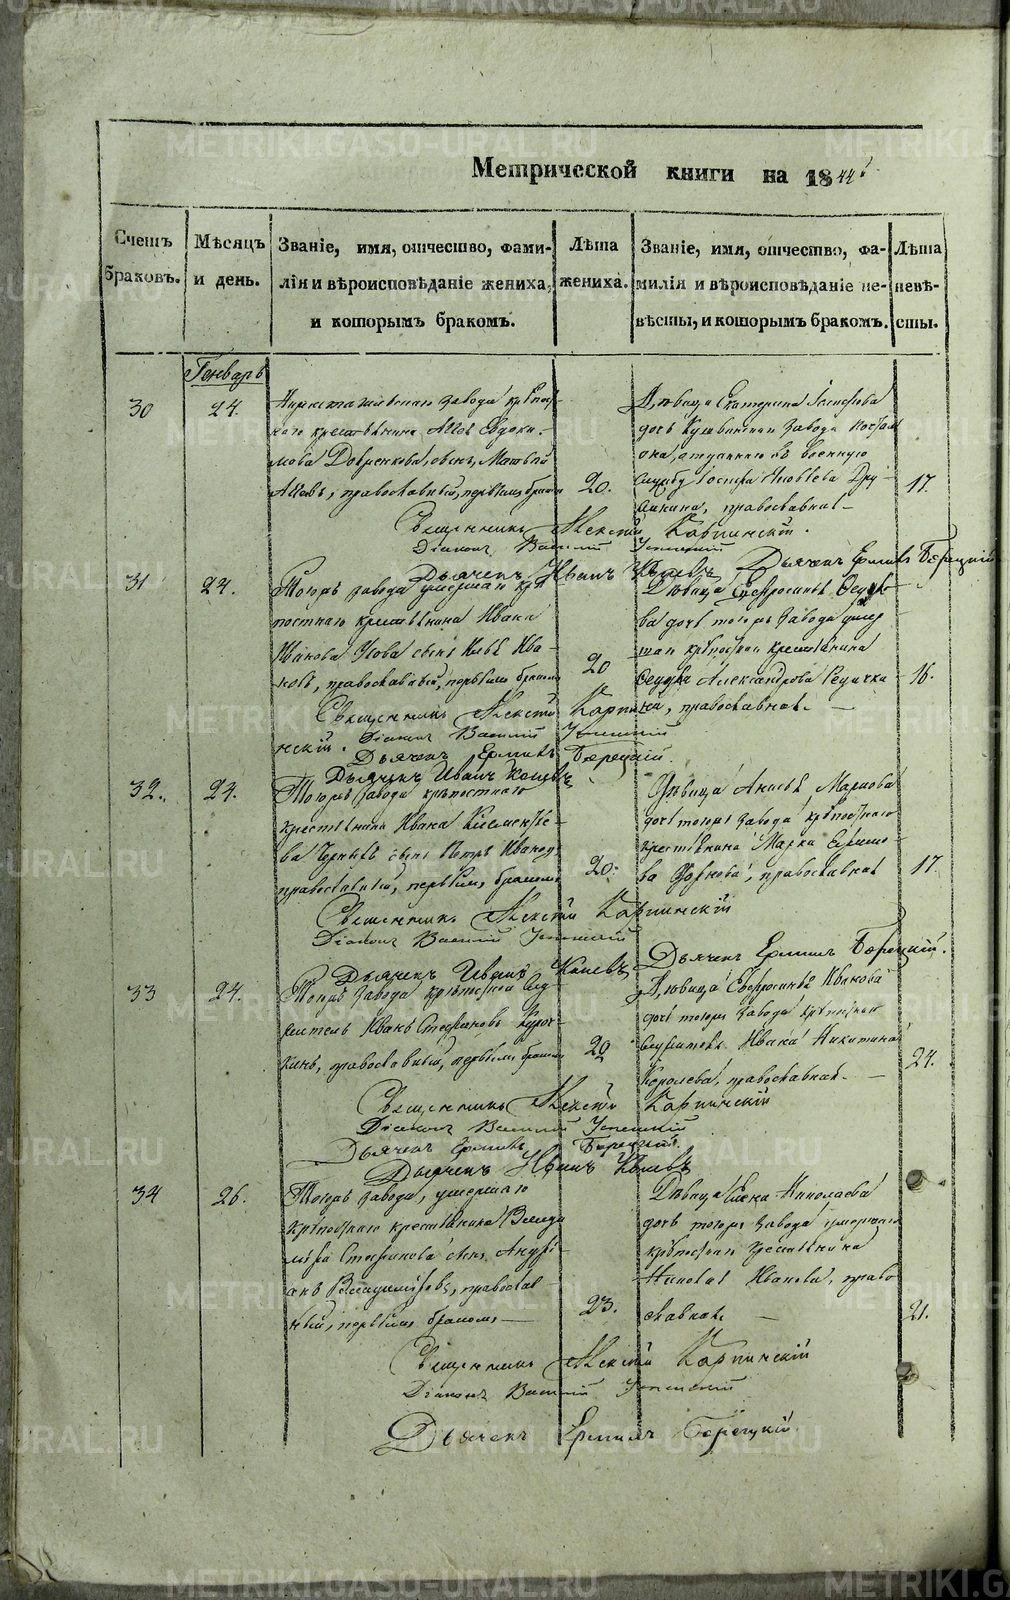 METRIKI.GASO-URAL.RU
Метрической книги на 1844
Счетъ браковъ.
Мѣсяцъ и день.
Званіе, имя, отчество, фами-
лія и вѣроисповѣданіе жениха,
и которымъ бракомъ.
Лѣта
жениха.
Званіе, имя, отчество, фа-
милія и вѣроисповѣданіе не-
вѣсты, и которымъ бракомъ.
Лѣта
невѣ-
сты.
Генварь
30
24.
завода крѣпост-
наго крестьянина Евдоки-
мова сынъ, Матвѣй
православный, первымъ бракомъ
20.
Дѣвица Екатерина
дочь завода
отданнаго въ военную
службу Іосифа Яковлева Дру-
жинина, православная
17.
Священникъ Алексій Карпинскій.
Діаконъ Василій Успенскій
Дьячекъ Иванъ Коневъ Дьячекъ Ермилъ Берецкій
31
24.
Тогожъ завода умершаго крѣ-
постнаго крестьянина Ивана
Иванова сынъ Ива-
новъ, православный, первымъ бракомъ
20
Дѣвица Евфросинья
ва дочь тогожъ завода умер-
шаго крѣпостнаго крестьянина
Александрова
православная.
16.
Священникъ Алексій Карпи
нскій. Діаконъ Василій Успенскій
Дьячекъ Ермилъ Берецкій.
Дьячекъ Иванъ Коневъ
32.
24.
Тогожъ завода крѣпостнаго
крестьянина Ивана Клементье-
ва сынъ Петръ Ивановъ,
православный, первымъ бракомъ
20.
Дѣвица Анисья Маркова
дочь тогожъ завода крѣпостнаго
крестьянина Марка
православная
17.
Священникъ Алексій Карпинскій
Діаконъ Василій Успенскій
Дьячекъ Иванъ Коневъ Дьячекъ Ермилъ Берецкій.
33
24.
Тогожъ завода крѣпостной слу-
житель Иванъ Стефановъ
православный, первымъ бракомъ
20
Дѣвица Евфросинья Иванова
дочь тогожъ завода крѣпостнаго
служителя Ивана Никитина
Королева, православная.
24.
Священникъ Алексій Карпинскій
Діаконъ Василій Успенскій
Дьячекъ Ермилъ Берецкій.
Дьячекъ Иванъ Коневъ
34
26.
Тогожъ завода, умершаго
крѣпостнаго крестьянина Влади-
міра Стефанова сынъ Андрі-
анъ Владиміровъ, православ-
ный, первымъ бракомъ
23.
Дѣвица Елена Николаева
дочь тогожъ завода умершаго
крѣпостнаго крестьянина
Николая Иванова, право
славная.
21.
Священникъ Алексій Карпинскій
Діаконъ Василій Успенскій
Дьячекъ Ермилъ Берецкій